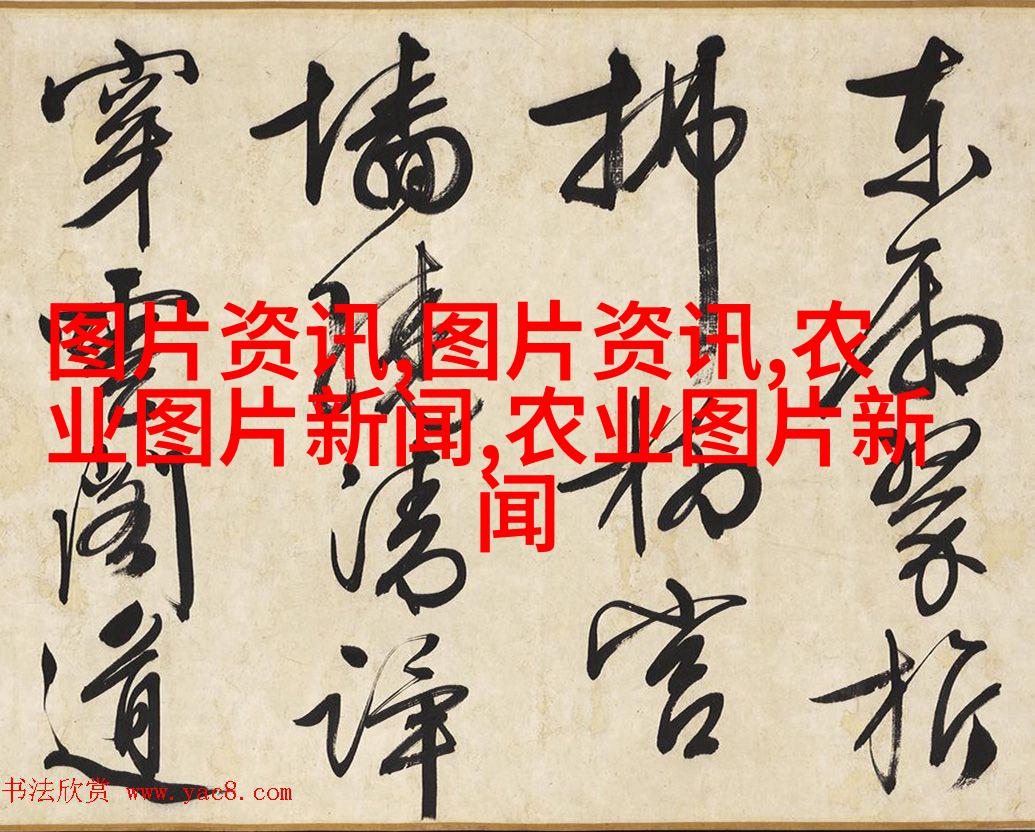 图片资讯,图片资讯,农
业图片新闻,农业图片新
闻
東翠
拂宮
墻清
穿雲閣道
书法欣赏 www.yac8.com